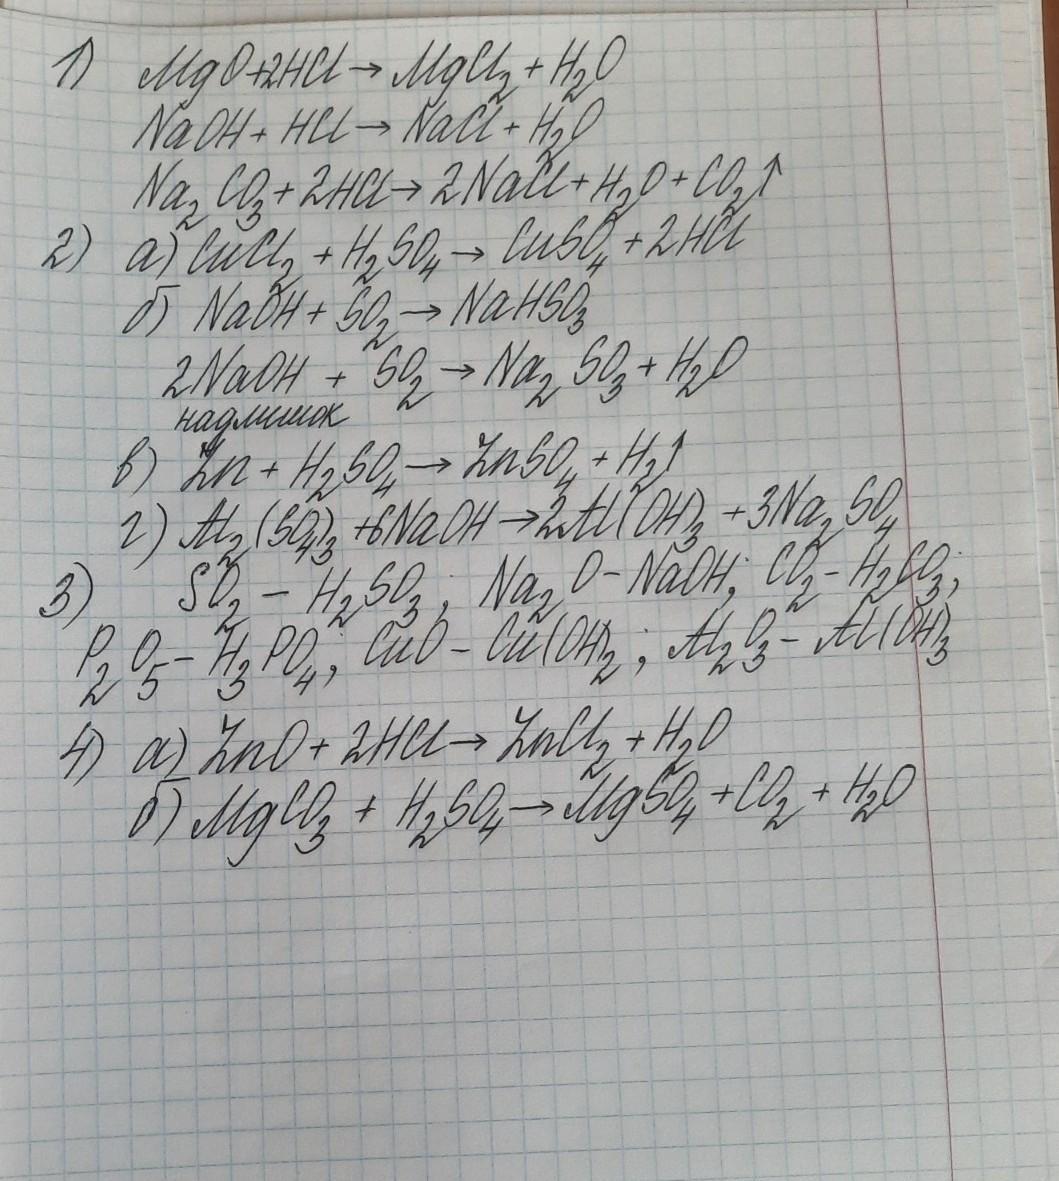 1) MgO+2HCl→MgCl₂+H₂O
NaOH+HCl→NaCl+H₂O
Na₂CO₃+2HCl→2NaCl+H₂O+CO₂↑
2) а) CuCl₂+H₂SO₄→CuSO₄+2HCl
б) NaOH+SO₂→NaHSO₃
2NaOH+SO₂→Na₂SO₃+H₂O
надлишок
в) Zn+H₂SO₄→ZnSO₄+H₂↑
г) Al₂(SO₄)₃+6NaOH→2Al(OH)₃+3Na₂SO₄
3) SO₂-H₂SO₃; Na₂O-NaOH; CO₂-H₂CO₃;
P₂O₅-H₃PO₄; CuO-Cu(OH)₂; Al₂O₃-Al(OH)₃
4) а) ZnO+2HCl→ZnCl₂+H₂O
б) MgCO₃+H₂SO₄→MgSO₄+CO₂+H₂O